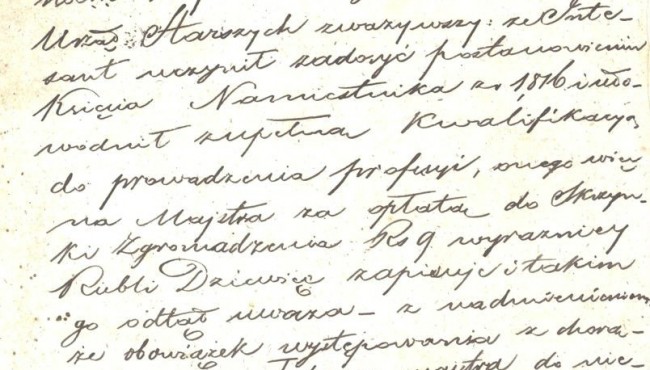 Urząd Starszych zważywszy: że Inte-
sant uczynił zadosyć postanowieniu
Księcia Namiestnika zr 1816 i udo-
wodnił zupełną Kwalifikacyą
do prowadzenia profesyi, onego więc
na Majstra za opłatą do Skrzyn-
ki Zgromadzenia Rs 9 wyraznicy
Rubli Dziewięć zapisuje i takim
go odtąd uważa – z nadmienieniem
że obowiązek występowania z chorą-
majstra do nie-